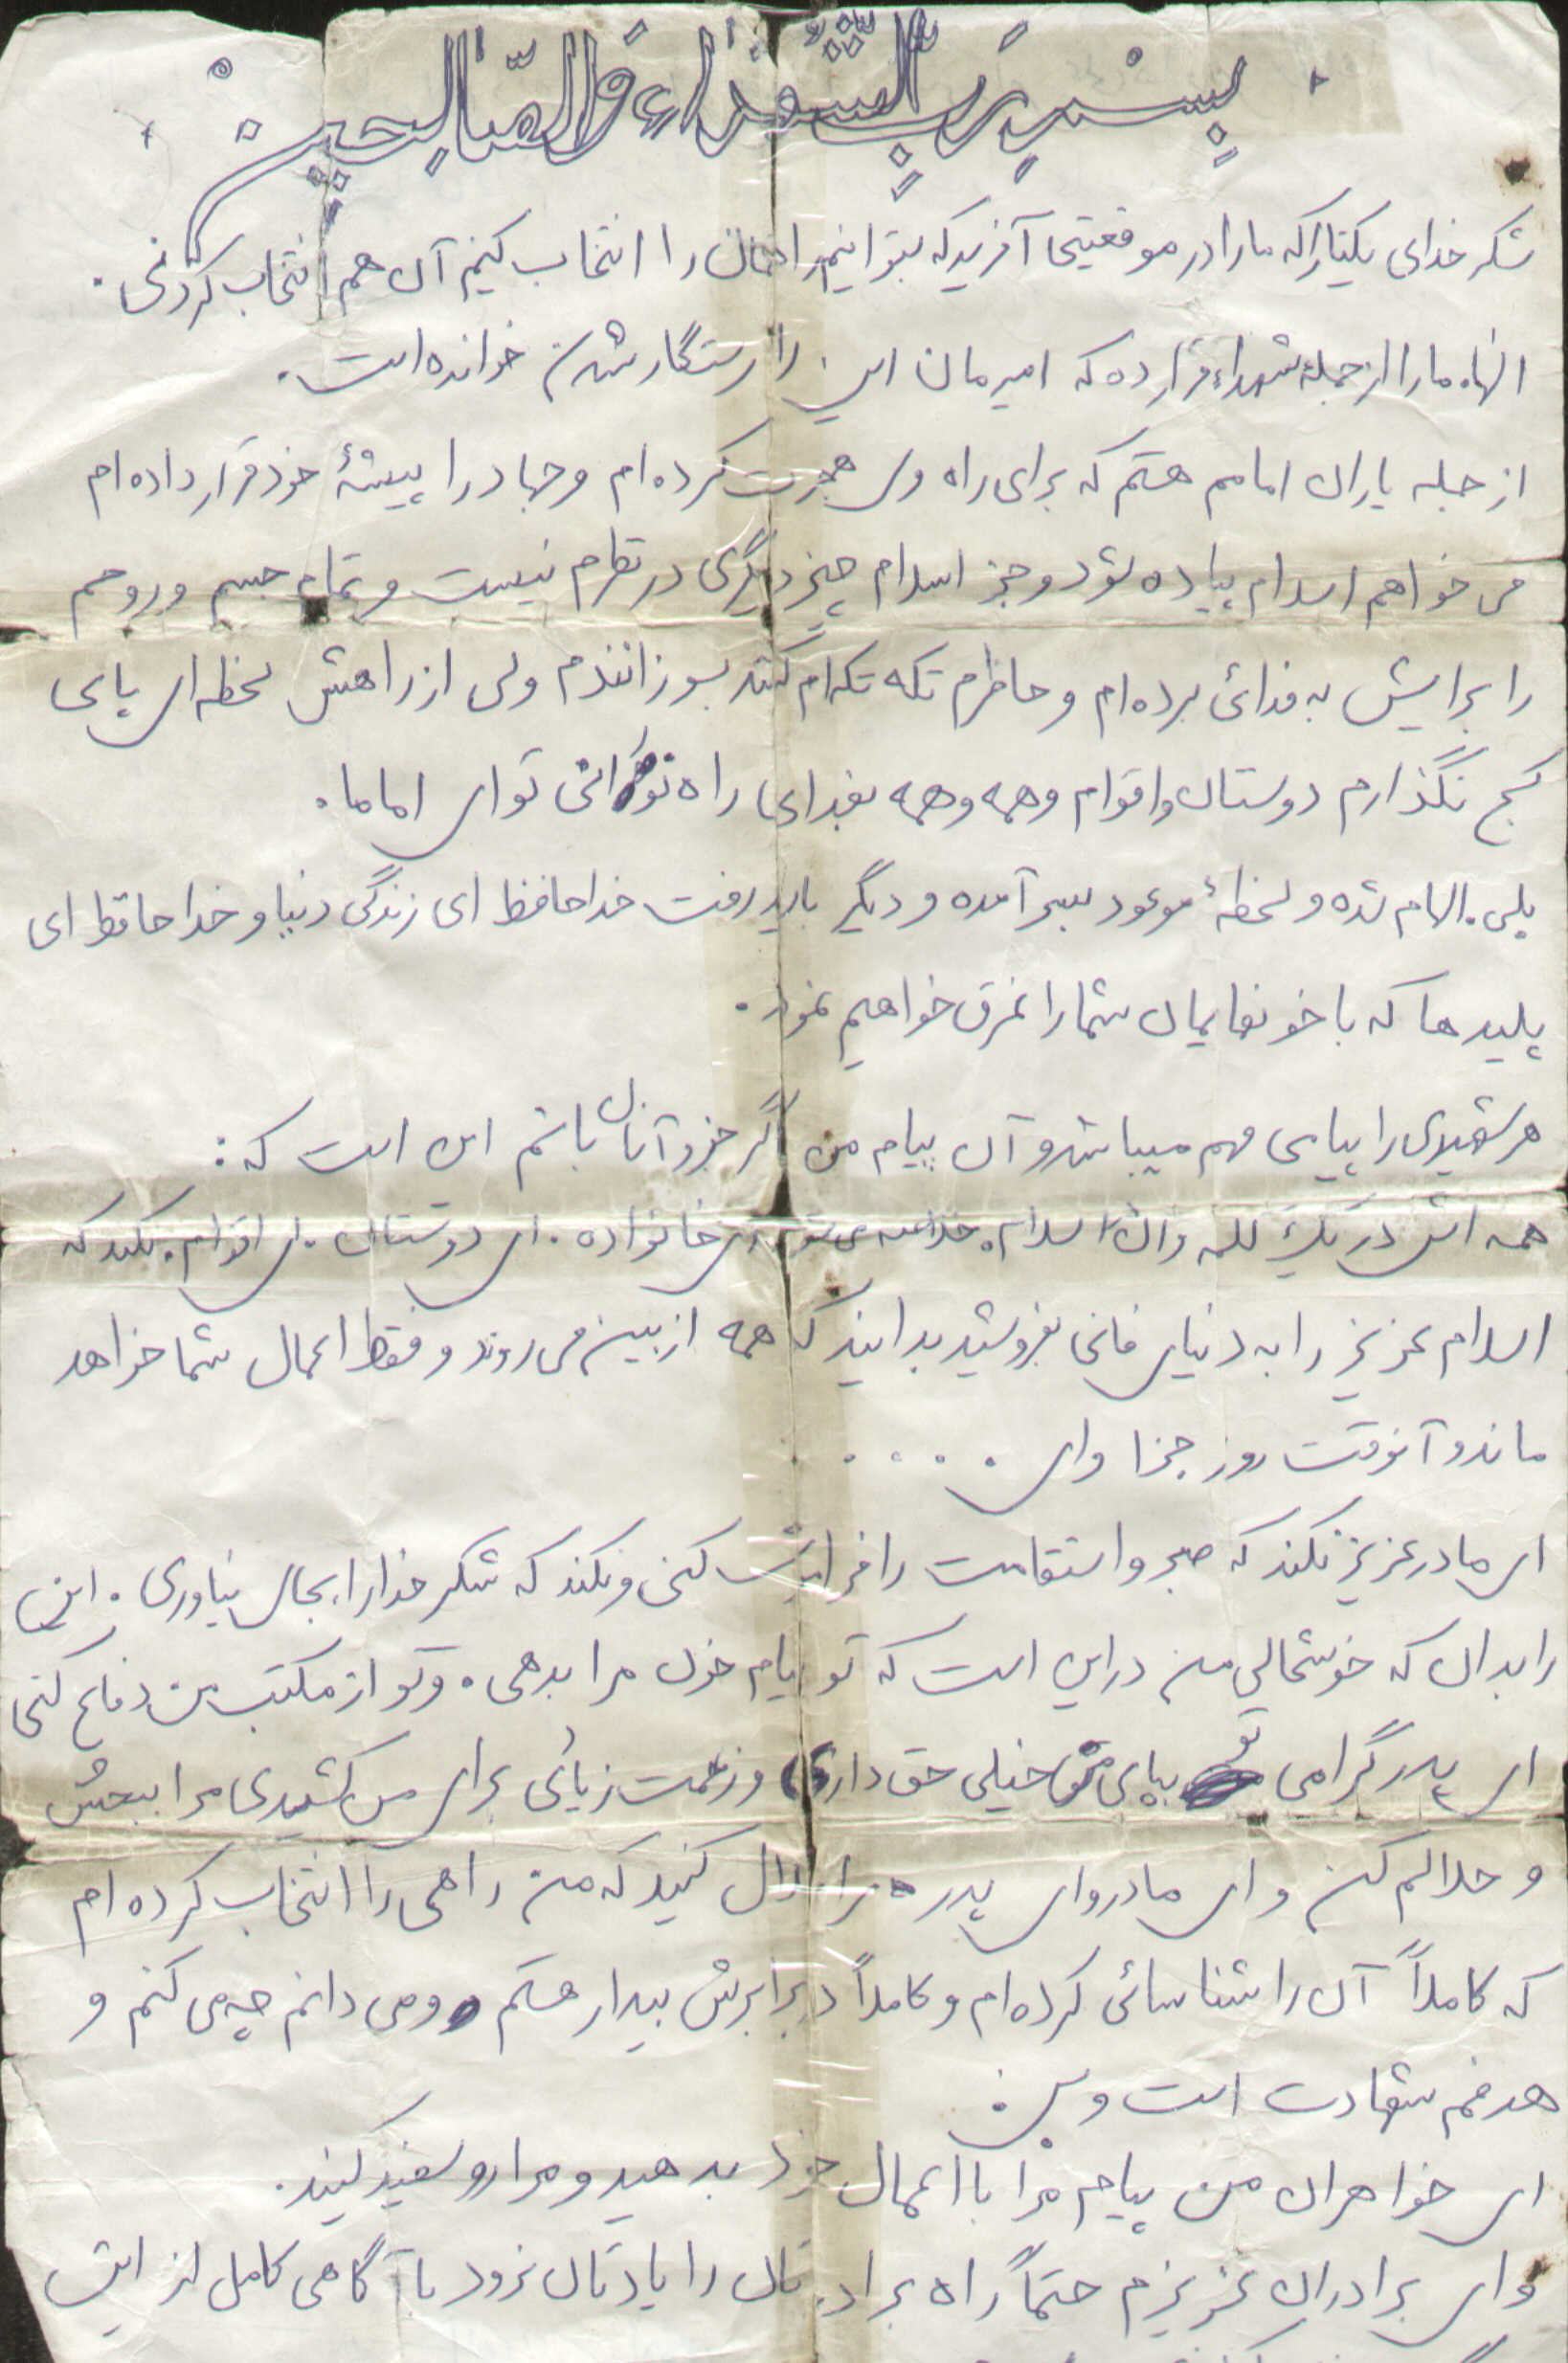 بِسْمِ رَبِّ الشُّهَداءِ وَالصّالِحین
شکر خدای یکتا را که ما را در موقعیتی آفرید که بتوانیم راهمان را انتخاب کنیم آن هم انتخاب کردنی.
الها. ما را از جمله شهداء قرار ده که امیرمان این را رستگار شدن خوانده است.
از جمله یاران امامم هستم که برای راه وی هجرت کرده‌ام و جهاد را پیشهٔ خود قرار داده‌ام
می خواهم اسلام پیاده شود و جز اسلام چیز دیگری در نظرم نیست و تمام جسم و روحم
را برایش به فدائی برده‌ام و حاظرم تکه تکه‌ام کنند بسوزانندم ولی از راهش لحظه‌ای پای
کج نگذارم دوستان و اقوام وهمه وهمه بفدای راه تو ای اماما.
بلی. الهام شده و لحظهٔ موعود بسر آمده و دیگر باید رفت خداحافظ ای زندگی دنیا و خداحافظ ای
پلیدها که با خونهایمان شما را غرق خواهیم نمود.
هر شهیدی را پیامی مهم میباشد و آن پیام من اگر جزو آنان باشم این است که:
همه‌اش در یک کلمه واژهٔ اسلام. خلاصه می‌شود ای خانواده. ای دوستان. ای اقوام. نکند که
اسلام عزیز را به دنیای فانی بفروشید بدانید که همه از بین می‌روند و فقط اعمال شما خواهد
ماند و آنوقت روز جزا وای . . . . .
ای مادر عزیز نکند که صبر و استقامت را فراموش کنی و نکند که شکر خدا را بجای نیاوری. این
را بدان که خوشحالی من در این است که تو پیام خون مرا بدهی. و تو از مکتب من دفاع کنی
ای پدر گرامی تو بپای من خیلی حق داری و زحمت زیادی برای من کشیدی مرا ببخش
و حلالم کن و ای مادر و ای پدر مرا حلال کنید که من راهی را انتخاب کرده‌ام
که کاملاً آن را شناسائی کرده‌ام و کاملاً در برابرش بیدار هستم و می دانم چه می کنم و
هدفم شهادت است و بس.
ای خواهران من پیام مرا با اعمال خود بدهید و مرا رو سفید کنید.
وای برادران عزیزم حتماً راه برادرتان را یادتان نرود با آگاهی کامل از این